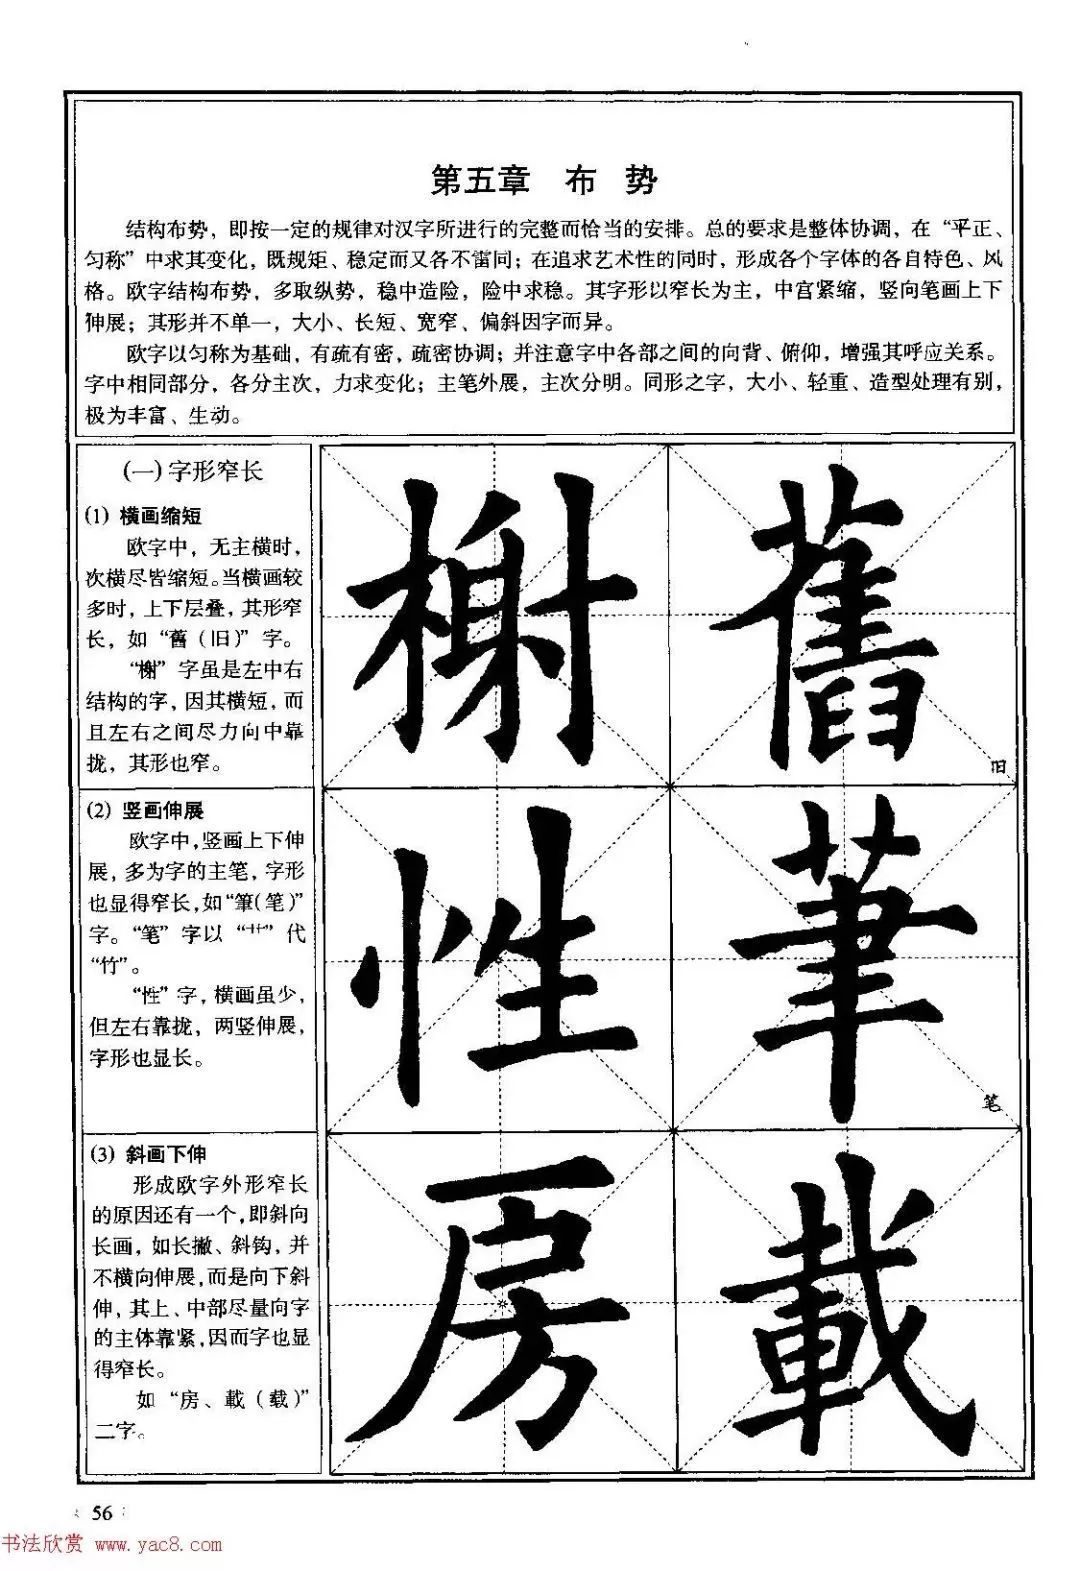 第五章 布 势
结构布势，即按一定的规律对汉字所进行的完整而恰当的安排。总的要求是整体协调，在“平正、
匀称”中求其变化，既规矩、稳定而又各不雷同；在追求艺术性的同时，形成各个字体的各自特色、风
格。欧字结构布势，多取纵势，稳中造险，险中求稳。其字形以窄长为主，中宫紧缩，竖向笔画上下
伸展；其形并不单一，大小、长短、宽窄、偏斜因字而异。
欧字以匀称为基础，有疏有密，疏密协调；并注意字中各部之间的向背、俯仰，增强其呼应关系。
字中相同部分，各分主次，力求变化；主笔外展，主次分明。同形之字，大小、轻重、造型处理有别，
极为丰富、生动。
(一)字形窄长
(1) 横画缩短
欧字中，无主横时，
次横尽皆缩短。当横画较
多时，上下层叠，其形窄
长，如“舊（旧）”字。
“榭”字虽是左中右
结构的字，因其横短，而
且左右之间尽力向中靠
拢，其形也窄。
榭 舊
旧
(2) 竖画伸展
欧字中，竖画上下伸
展，多为字的主笔，字形
也显得窄长，如“筆(笔)”
字。“笔”字以“艹”代
“竹”。
“性”字，横画虽少，
但左右靠拢，两竖伸展，
字形也显长。
性 筆
笔
(3) 斜画下伸
形成欧字外形窄长
的原因还有一个，即斜向
长画，如长撇、斜钩，并
不横向伸展，而是向下斜
伸，其上、中部尽量向字
的主体靠紧，因而字也显
得窄长。
如“房、載（载）”
二字。
房 載
56
书法欣赏 www.yac8.com